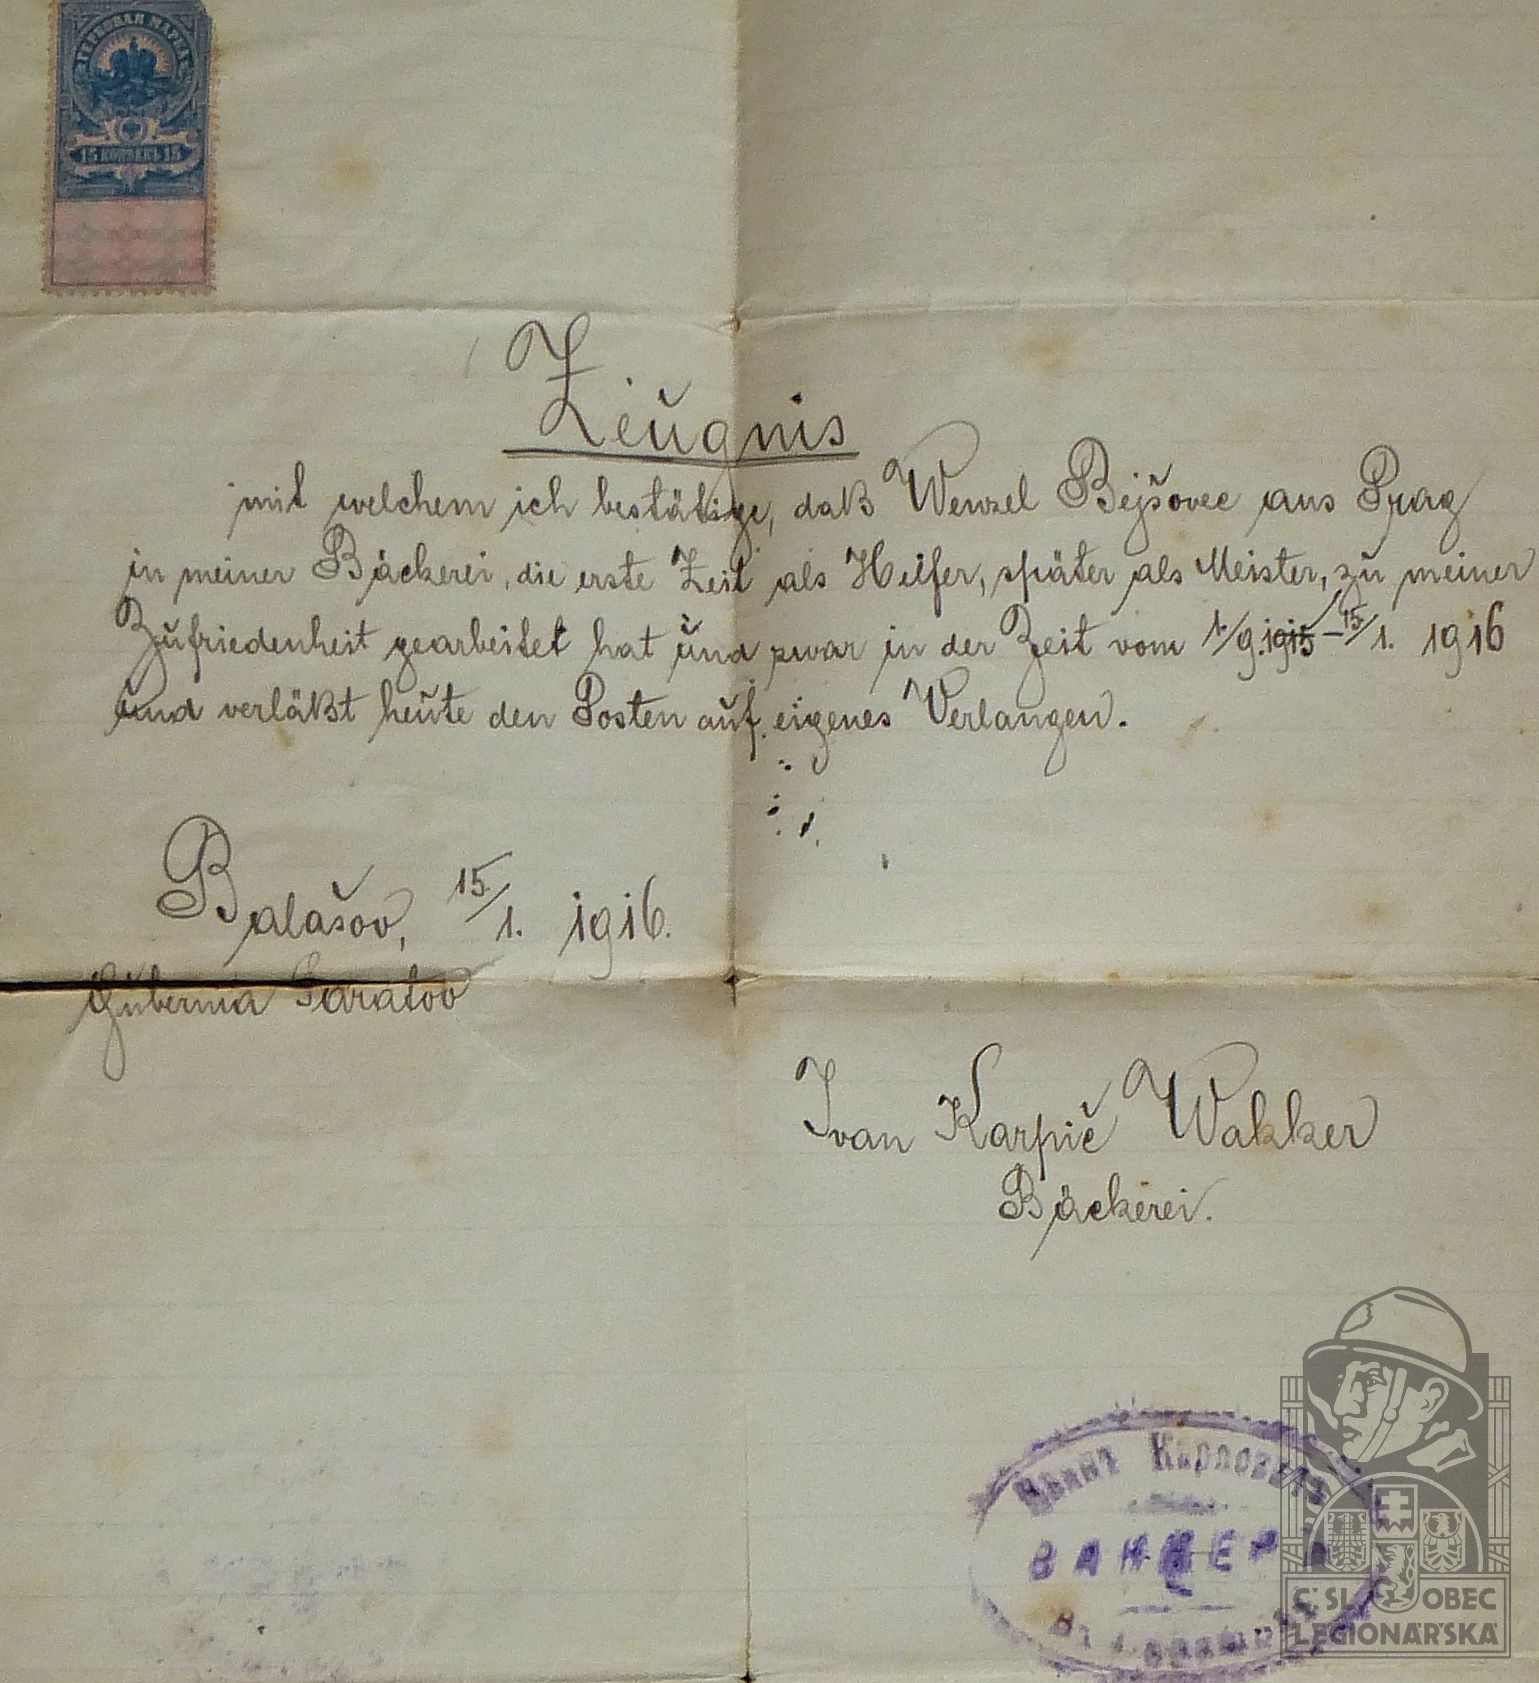 ГЕРБОВАЯ МАРКА
15 КОПѢЕКЪ 15
Zeugnis
mit welchem ich bestätige, daß Wenzel Bejšovec aus Prag
in meiner Bäckerei, die erste Zeit als Helfer, später als Meister, zu meiner
Zufriedenheit gearbeitet hat und zwar in der Zeit vom 1./9. 1915 – 15/1. 1916
und verläßt heute den Posten auf eigenes Verlangen.
Balašov, 15/1. 1916.
Gubernia Saratov
Ivan Karpič Wakker
Bäckerei.
Иванъ Карловичъ
ВАККЕРЪ
ČSL. OBEC
LEGIONÁŘSKÁ